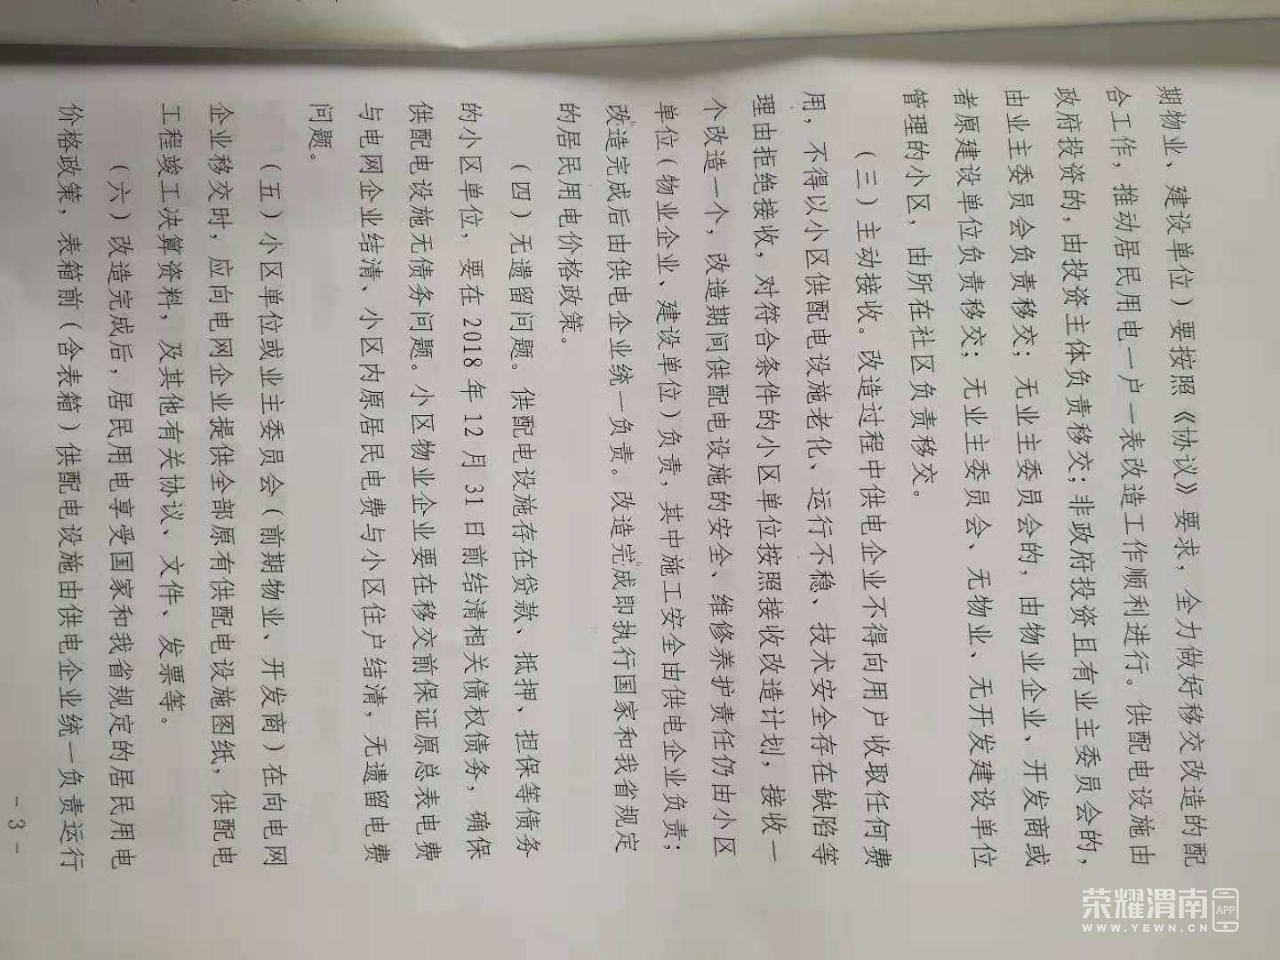 期物业、建设单位）要按照《协议》要求，全力做好移交改造的配
合工作，推动居民用电一户一表改造工作顺利进行。供配电设施由
政府投资的，由投资主体负责移交；非政府投资且有业主委员会的，
由业主委员会负责移交；无业主委员会的，由物业企业、开发商或
者原建设单位负责移交；无业主委员会、无物业、无开发建设单位
管理的小区，由所在社区负责移交。
（三）主动接收。改造过程中供电企业不得向用户收取任何费
用，不得以小区供配电设施老化、运行不稳、技术安全存在缺陷等
理由拒绝接收，对符合条件的小区单位按照接收改造计划，接收一
个改造一个，改造期间供配电设施的安全、维修养护责任仍由小区
单位（物业企业、建设单位）负责，其中施工安全由供电企业负责；
改造完成后由供电企业统一负责。改造完成即执行国家和我省规定
的居民用电价格政策。
（四）无遗留问题。供配电设施存在贷款、抵押、担保等债务
的小区单位，要在 2018 年 12 月 31 日前结清相关债权债务，确保
供配电设施无债务问题。小区物业企业要在移交前保证原总表电费
与电网企业结清、小区内原居民电费与小区住户结清，无遗留电费
问题。
（五）小区单位或业主委员会（前期物业、开发商）在向电网
企业移交时，应向电网企业提供全部原有供配电设施图纸，供配电
工程竣工决算资料，及其他有关协议、文件、发票等。
（六）改造完成后，居民用电享受国家和我省规定的居民用电
价格政策，表箱前（含表箱）供配电设施由供电企业统一负责运行
- 3 -
荣耀渭南 APP
WWW.YEWN.CN